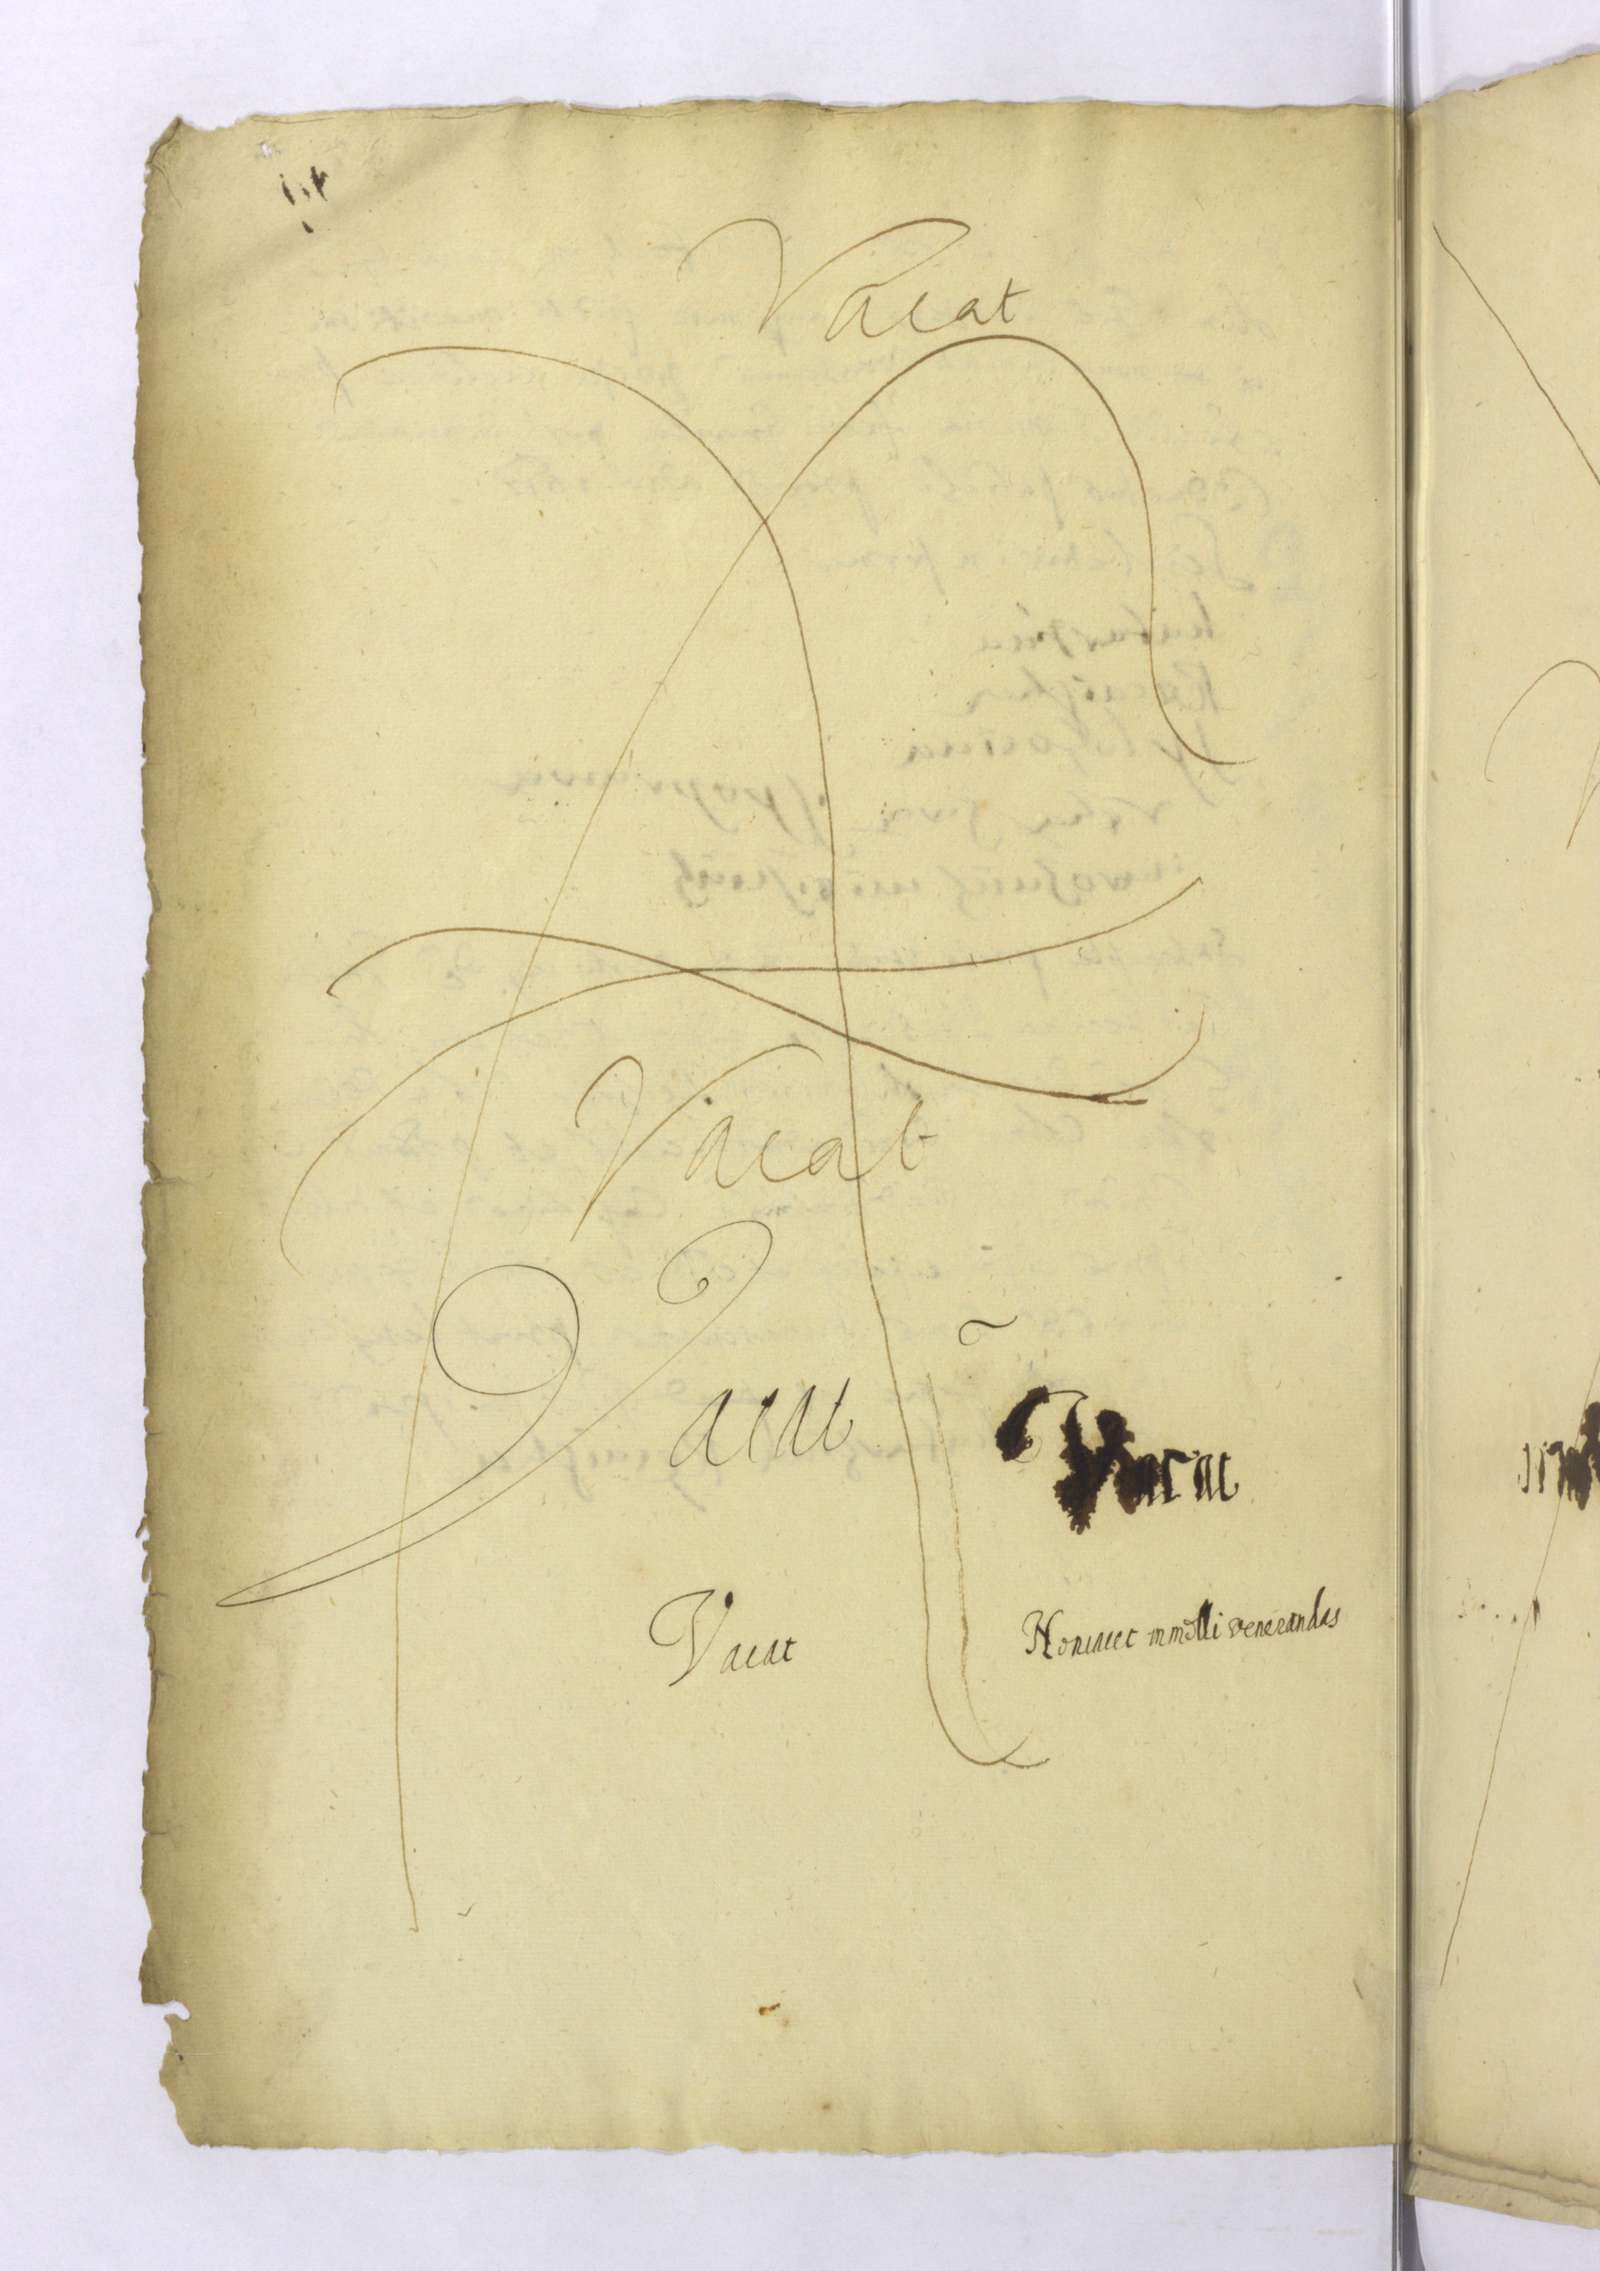 Vacat
Vacat
Vacat
Vacat
Vacat
Non iacet in molli venerandas